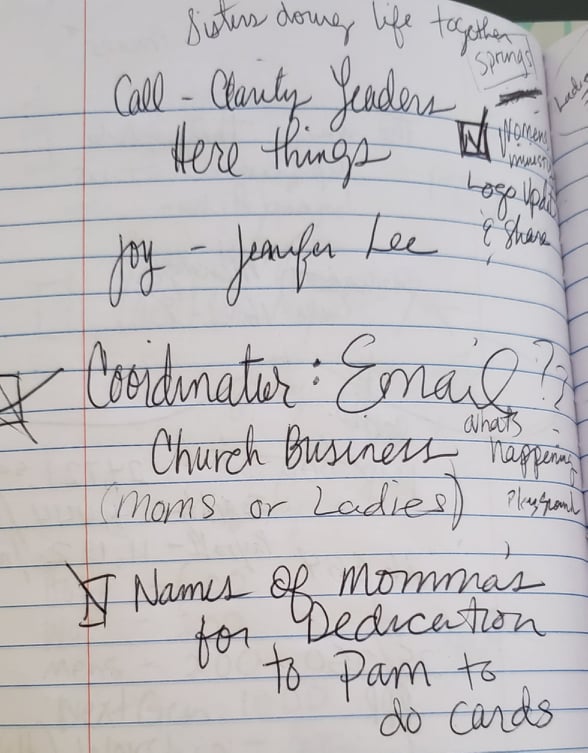 Sisters doing life together
Springs
Call - Clarity Leaders
Here things
Womens
Logo Upda
& Share
Joy - Jennifer Lee
Coordinator: Email ??
whats
happening
Playground
Church Business
(Moms or Ladies)
Names of Momma's
for Dedication
to Pam to
do cards